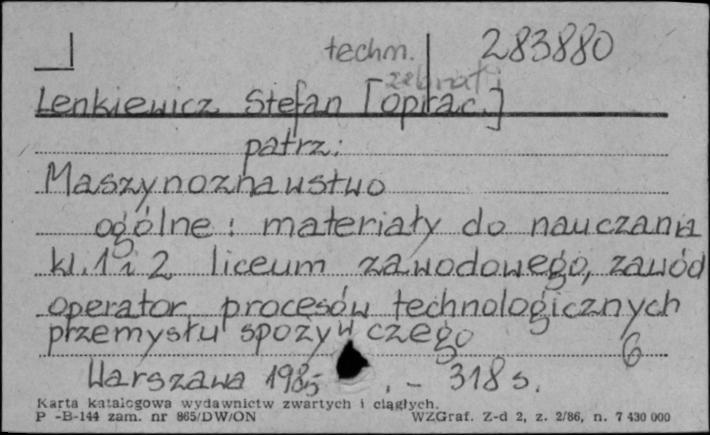 techn. 283880
zebrał i
Lenkiewicz Stefan [oprac.]
patrz:
Maszynoznawstwo
ogólne : materiały do nauczania
kl. 1 i 2 liceum zawodowego, zawód
operator procesów technologicznych
przemysłu spożywczego
6
Warszawa 1985 . - 318 s.
Karta katalogowa wydawnictw zwartych i ciągłych.
P -B-144 zam. nr 865/DW/ON WZGraf. Z-d 2, z. 2/86, n. 7 430 000